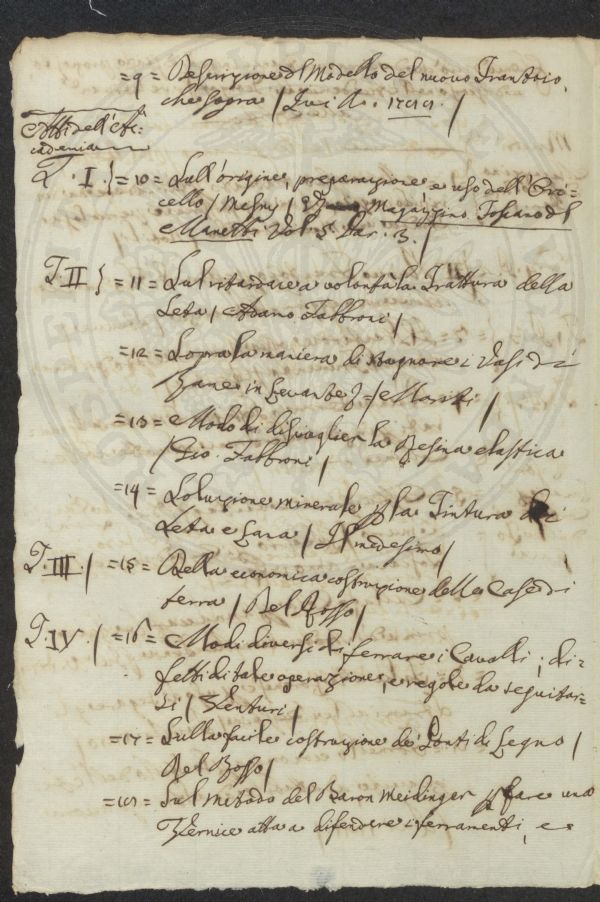 =9= Descrizione del Modello del nuovo Frantoio,
che sopra / Qui A. 1791. /
Atti dell'Ac:
cademia
T. I } =10= Sull'origine, preparazione e uso dell'Ori=
cello / Mesny / Magazzino Toscano del
Manetti Vol. 5. Par. 3. /
T. II } =11= Sul ritardare a volontà la Trattura della
Seta / Adamo Fabbroni /
=12= Sopra la maniera di stagnare i Vasi di
Rame in Levante =/ Mariti /
=13= Modo di disciogliere la Resina elastica
/ Gio. Fabbroni /
=14= Soluzione minerale p la Tintura di
Seta e Lana / Il medesimo /
T. III. / =15= Della economica costruzione delle Case di
terra / Del Rosso /
T. IV. / =16= Modi diversi di ferrare i Cavalli; di=
fetti di tale operazione, e regole da seguitar=
si / Venturi /
=17= Sulla facile costruzione de' Ponti di Legno /
Del Rosso /
=18= Sul metodo del Baron Meidinger p fare una
Vernice atta a difendere i ferramenti, e